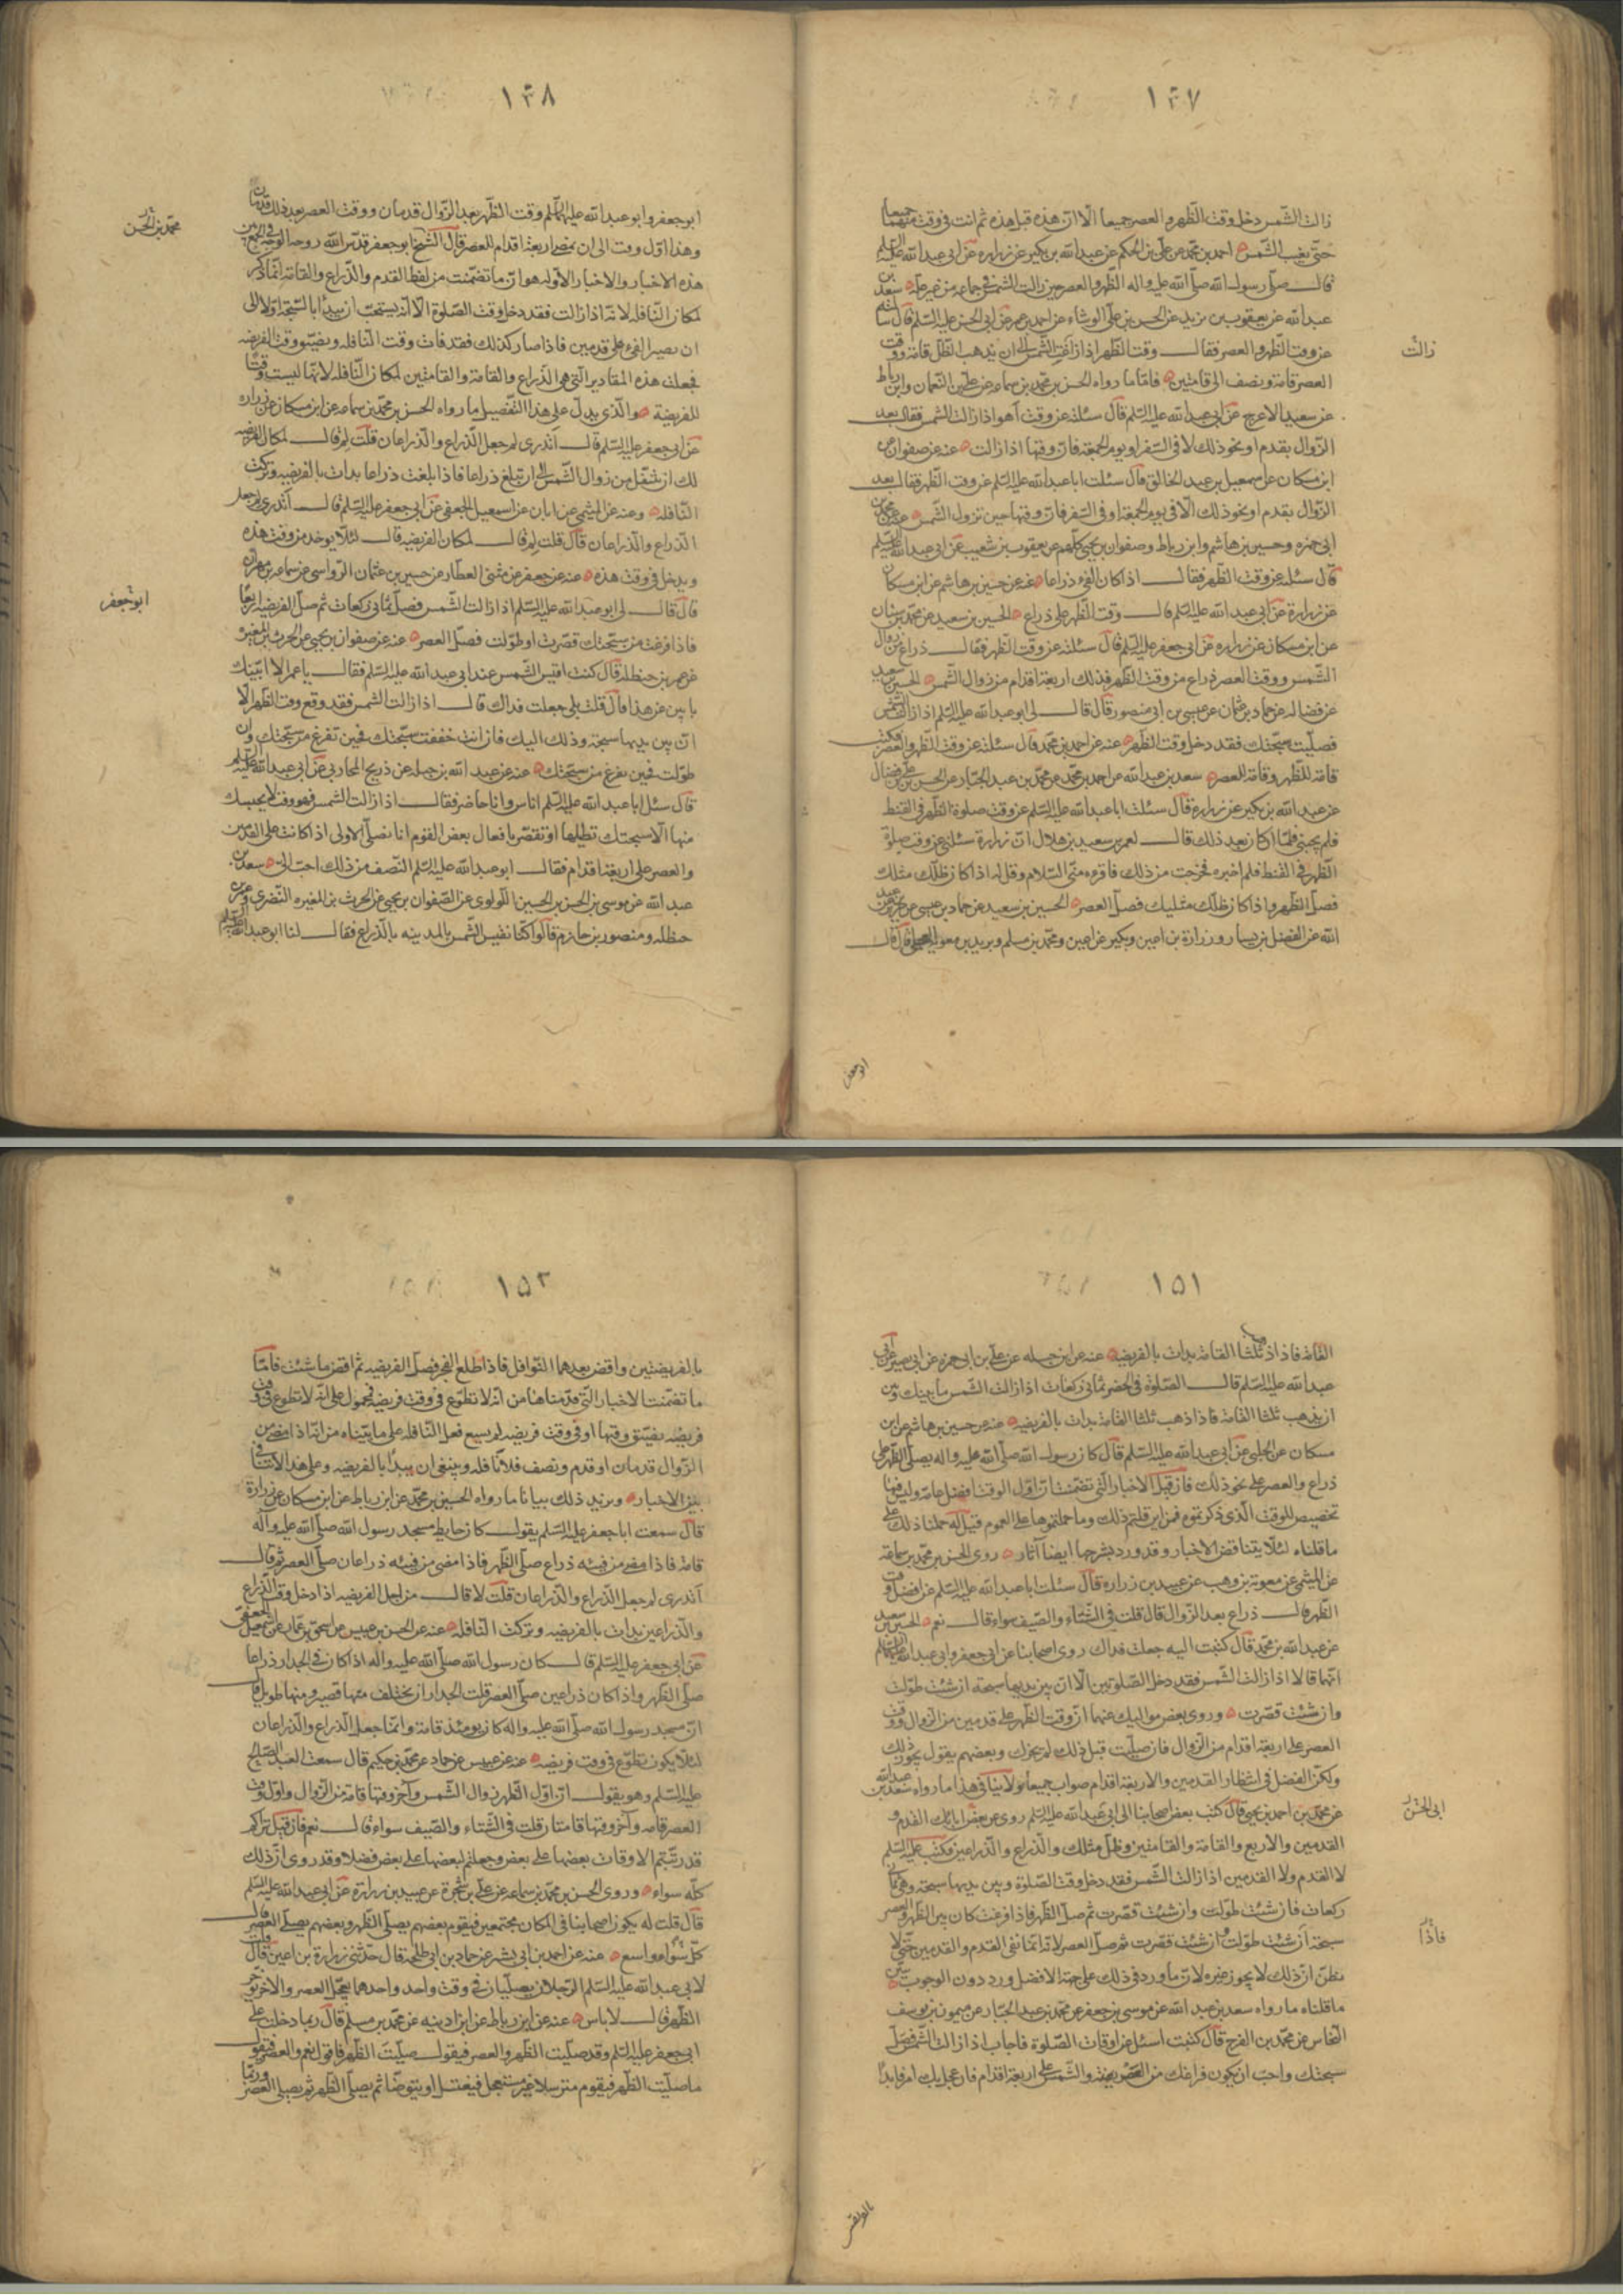 ١٤٧
زالت الشمس دخل وقت الظهر والعصر جميعا الا ان هذه قبل هذه ثم انت فى وقت منهما جميعا
حتى تغيب الشمس احمد بن محمد عن على بن الحكم عن عبد الله بن بكير عن زراره عن ابى عبد الله عليه السلم
قال صلى رسول الله صلى الله عليه واله الظهر والعصر حين زالت الشمس فى جماعه من غير علة سعد بن
عبد الله عن يعقوب بن يزيد عن الحسن بن على الوشاء عن احمد بن عمر عن ابى الحسن عليه السلم قال سالته
عن وقت الظهر والعصر فقال وقت الظهر اذا زاغت الشمس الى ان يذهب الظل قامة ووقت
العصر قامة ونصف الى قامتين فاما ما رواه الحسن بن محمد بن سماعه عن على بن النعمان وابن رباط
عن سعيد الاعرج عن ابى عبد الله عليه السلم قال سئلته عن وقت الظهر أهو اذا زالت الشمس فقال بعد
الزوال بقدم او نحو ذلك الا فى السفر او يوم الجمعة فان وقتها اذا زالت عنه عن صفوان عن
ابن مسكان عن اسمعيل بن عبد الخالق قال سئلت ابا عبد الله عليه السلم عن وقت الظهر فقال بعد
الزوال بقدم او نحو ذلك الا فى يوم الجمعة او فى السفر فان وقتها حين تزول الشمس عنه عن محمد بن
ابى حمزه وحسين بن هاشم وابن رباط وصفوان بن يحيى كلهم عن يعقوب بن شعيب عن ابى عبد الله عليه السلم
قال سئلته عن وقت الظهر فقال اذا كان الفىء ذراعا عنه عن حسين بن هاشم عن ابن مسكان
عن زرارة عن ابى عبد الله عليه السلم قال وقت الظهر على ذراع الحسين بن سعيد عن محمد بن سنان
عن ابن مسكان عن زراره عن ابى جعفر عليه السلم قال سئلته عن وقت الظهر فقال ذراع من زوال
الشمس ووقت العصر ذراع من وقت الظهر فذلك اربعة اقدام من زوال الشمس الحسين بن سعيد
عن فضاله عن حماد بن عثمان عن عيسى بن ابى منصور قال قال لى ابو عبد الله عليه السلم اذا زالت الشمس
فصليت سبحتك فقد دخل وقت الظهر عنه عن احمد بن محمد قال سئلته عن وقت الظهر والعصر فكتب
قامة للظهر وقامة للعصر سعد بن عبد الله عن احمد بن محمد عن محمد بن عبد الجبار عن الحسن بن على بن فضال
عن عبد الله بن بكير عن زرارة قال سئلت ابا عبد الله عليه السلم عن وقت صلوة الظهر فى القيظ
فلم يجبنى فلما ان كان بعد ذلك قال لعمر بن سعيد بن هلال ان زرارة سئلنى عن وقت صلوة
الظهر فى القيظ فلم اخبره فخرجت من ذلك فاقرءه منى السلام وقل له اذا كان ظلك مثلك
فصل الظهر واذا كان ظلك مثليك فصل العصر الحسين بن سعيد عن حماد بن عيسى عن حريز بن عبد
الله عن الفضل بن يسار وزرارة بن اعين وبكير بن اعين ومحمد بن مسلم وبريد بن معويه العجلى قال قال
زالت
ابو جعفر
١٤٨
ابو جعفر وابو عبد الله عليهما السلم وقت الظهر بعد الزوال قدمان ووقت العصر بعد ذلك قدمان
وهذا اول وقت الى ان يمضى اربعة اقدام للعصر قال الشيخ ابو جعفر قدس الله روحه الوجه فى الجمع بين
هذه الاخبار والاخبار الاوله هو ان ما تضمنت من لفظ القدم والذراع والقامة انما ذكر
لمكان النافله لانه اذا زالت فقد دخل وقت الصلوة الا انه يستحب ان يبدأ بالسبحة اولا الى
ان يصير الفىء على قدمين فاذا صار كذلك فقد فات وقت النافله وتضيق وقت الفريضه
فجعلت هذه المقادير التى هى الذراع والقامة والقامتين لمكان النافله لانها ليست وقتا
للفريضة والذى يدل على هذا التفصيل ما رواه الحسن بن محمد بن سماعه عن ابن مسكان عن زراره
عن ابى جعفر عليه السلم قال أتدرى لم جعل الذراع والذراعان قلت لم قال لمكان الفريضه
لك ان تتنفل من زوال الشمس الى ان تبلغ ذراعا فاذا بلغت ذراعا بدأت بالفريضه وتركت
النافله وعنه عن الميثمى عن ابان عن اسمعيل الجعفى عن ابى جعفر عليه السلم قال أتدرى لم جعل
الذراع والذراعان قال قلت لم قال لمكان الفريضه قال لئلا يوخذ من وقت هذه
ويدخل فى وقت هذه عنه عن جعفر عن مثنى العطار عن حسين بن عثمان الرواسى عن سماعه بن مهران
قال قال لى ابو عبد الله عليه السلم اذا زالت الشمس فصل ثمانى ركعات ثم صل الفريضه اربعا
فاذا فرغت من سبحتك قصرت او طولت فصل العصر عنه عن صفوان بن يحيى عن الحرث بن المغيره
عن عمر بن حنظله قال كنت اقيس الشمس عند ابى عبد الله عليه السلم فقال يا عمر الا انبئك
بابين من هذا قال قلت بلى جعلت فداك قال اذا زالت الشمس فقد وقع وقت الظهر الا
ان بين يديها سبحة وذلك اليك فان انت خففت سبحتك فحين تفرغ من سبحتك وان
طولت فحين تفرغ من سبحتك عنه عن عبد الله بن جبله عن ذريح المحاربى عن ابى عبد الله عليه السلم
قال سئل ابا عبد الله عليه السلم اناس وانا حاضر فقال اذا زالت الشمس فهو وقت لا يحبسك
منها الا سبحتك تطيلها او تقصرها فقال بعض القوم انا نصلى الاولى اذا كانت على القدمين
والعصر على اربعة اقدام فقال ابو عبد الله عليه السلم النصف من ذلك احب الى سعد بن
عبد الله عن موسى بن الحسن بن الحسين اللولوى عن الصفوان بن يحيى عن الحرث بن المغيره النضرى وعمر بن
حنظله ومنصور بن حازم قالوا كنا نقيس الشمس بالمدينه بالذراع فقال لنا ابو عبد الله عليه السلم
محمد بن الحسن
ابو جعفر
١٥١
القامة فاذا ذهب ثلثا القامة بدأت بالفريضه عنه عن ابن جبله عن على بن ابى حمزه عن ابى بصير عن ابى
عبد الله عليه السلم قال الصلوة فى الحضر ثمانى ركعات اذا زالت الشمس ما بينك وبين
ان يذهب ثلثا القامة فاذا ذهب ثلثا القامة بدأت بالفريضه عنه عن حسين بن هاشم عن ابن
مسكان عن الحلبى عن ابى عبد الله عليه السلم قال كان رسول الله صلى الله عليه واله يصلى الظهر على
ذراع والعصر على نحو ذلك فان قيل الاخبار التى تضمنت ان اول الوقت افضل عامة وليس فيها
تخصيص للوقت الذى ذكرتموه فمن اين قلتم ذلك وما حملتموها على العموم قيل له حملنا ذلك على
ما قلناه لئلا يتناقض الاخبار وقد ورد بشرحها ايضا آثار روى الحسن بن محمد بن سماعة
عن الميثمى عن معويه بن وهب عن عبيد بن زراره قال سئلت ابا عبد الله عليه السلم عن افضل وقت
الظهر قال ذراع بعد الزوال قال قلت فى الشتاء والصيف سواء قال نعم الحسين بن سعيد
عن عبد الله بن محمد قال كتبت اليه جعلت فداك روى اصحابنا عن ابى جعفر وابى عبد الله عليهما السلم
انهما قالا اذا زالت الشمس فقد دخل الصلوتين الا ان بين يديها سبحة ان شئت طولت
وان شئت قصرت وروى بعض مواليك عنهما ان وقت الظهر على قدمين من الزوال ووقت
العصر على اربعة اقدام من الزوال فان صليت قبل ذلك لم يجزك وبعضهم يقول يجوز ذلك
ولكن الفضل فى انتظار القدمين والاربعة اقدام
عن محمد بن احمد بن يحيى قال كتب بعض اصحابنا الى ابى عبد الله عليه السلم روى عن ابائك القدم و
القدمين والاربع والقامة والقامتين وظل مثلك والذراع والذراعين فكتب عليه السلم
لا القدم ولا القدمين اذا زالت الشمس فقد دخل وقت الصلوة وبين يديها سبحة وهى ثمانى
ركعات فان شئت طولت وان شئت قصرت ثم صل الظهر فاذا فرغت كان بين الظهر والعصر
سبحة ان شئت طولت وان شئت قصرت ثم صل العصر لانه انما نفى القدم والقدمين حتى لا
يظن ان ذلك لا يجوز غيره لان ما ورد فى ذلك على جهة الافضل ورد دون الوجوب يبين
ما قلناه ما رواه سعد بن عبد الله عن موسى بن جعفر عن محمد بن عبد الجبار عن ميمون بن يوسف
النخاس عن محمد بن الفرج قال كتبت اسئل عن اوقات الصلوة فاجاب اذا زالت الشمس فصل
سبحتك واحب ان يكون فراغك من الفريضة والشمس على اربعة اقدام فان عجل بك امر فابدأ
ابى الحسن
فاذا
١٥٢
بالفريضتين واقض بعدهما النوافل فاذا طلع الفجر فصل الفريضه ثم اقض ما شئت فاما
ما تضمنت الاخبار التى قدمناها من انه لا تطوع فى وقت فريضه فمحمول على انه لا تطوع فى وقت
فريضه تضيق وقتها او فى وقت فريضه لم يسع فعل النافله على ما بيناه من انه اذا مضى من
الزوال قدمان او قدم ونصف فلا نافله وينبغى ان يبدأ بالفريضه وعلى هذا
بين الاخبار ويزيد ذلك بيانا ما رواه الحسين بن محمد عن ابن رباط عن ابن مسكان عن زرارة
قال سمعت ابا جعفر عليه السلم يقول كان حايط مسجد رسول الله صلى الله عليه واله
قامة فاذا مضى من فيئه ذراع صلى الظهر فاذا مضى من فيئه ذراعان صلى العصر ثم قال
أتدرى لم جعل الذراع والذراعان قلت لا قال من اجل الفريضه اذا دخل وقت الذراع
والذراعين بدأت بالفريضه وتركت النافله عنه عن الحسن بن عديس عن اسحق بن عمار عن اسمعيل الجعفى
عن ابى جعفر عليه السلم قال كان رسول الله صلى الله عليه واله اذا كان فى الجدار ذراعا
صلى الظهر واذا كان ذراعين صلى العصر قلت الجدار ان يختلف منها قصير ومنها طويل قال
ان مسجد رسول الله صلى الله عليه واله كان يومئذ قامة وانما جعل الذراع والذراعان
لئلا يكون تطوع فى وقت فريضه عنه عن عبيس عن حماد عن محمد بن حكيم قال سمعت العبد الصالح
عليه السلم وهو يقول ان اول الظهر زوال الشمس وآخر وقتها قامة من الزوال واول وقت
العصر قامه وآخر وقتها قامتان قلت فى الشتاء والصيف سواء قال نعم فان قيل نراكم
قد رتبتم الاوقات بعضها على بعض وجعلتم لبعضها على بعض فضلا وقد روى ان ذلك
كله سواء وروى الحسن بن محمد بن سماعه عن على بن شجرة عن عبيد بن زرارة عن ابى عبد الله عليه السلم
قال قلت له يكون اصحابنا فى المكان مجتمعين فيقوم بعضهم يصلى الظهر وبعضهم يصلى العصر قال
كل سواء واسع عنه عن احمد بن ابى بشر عن حماد بن ابى طلحه قال حدثنى زرارة بن اعين قال قلت
لابى عبد الله عليه السلم الرجلان يصليان فى وقت واحد واحدهما يعجل العصر والاخر يؤخر
الظهر قال لا باس عنه عن ابن رباط عن ابن اذينه عن محمد بن مسلم قال ربما دخلت على
ابى جعفر عليه السلم وقد صليت الظهر والعصر فيقول صليت الظهر فاقول نعم والعصر فيقول
ما صليت الظهر فيقوم مترسلا غير مستعجل فيغتسل او يتوضأ ثم يصلى الظهر ثم يصلى العصر وربما